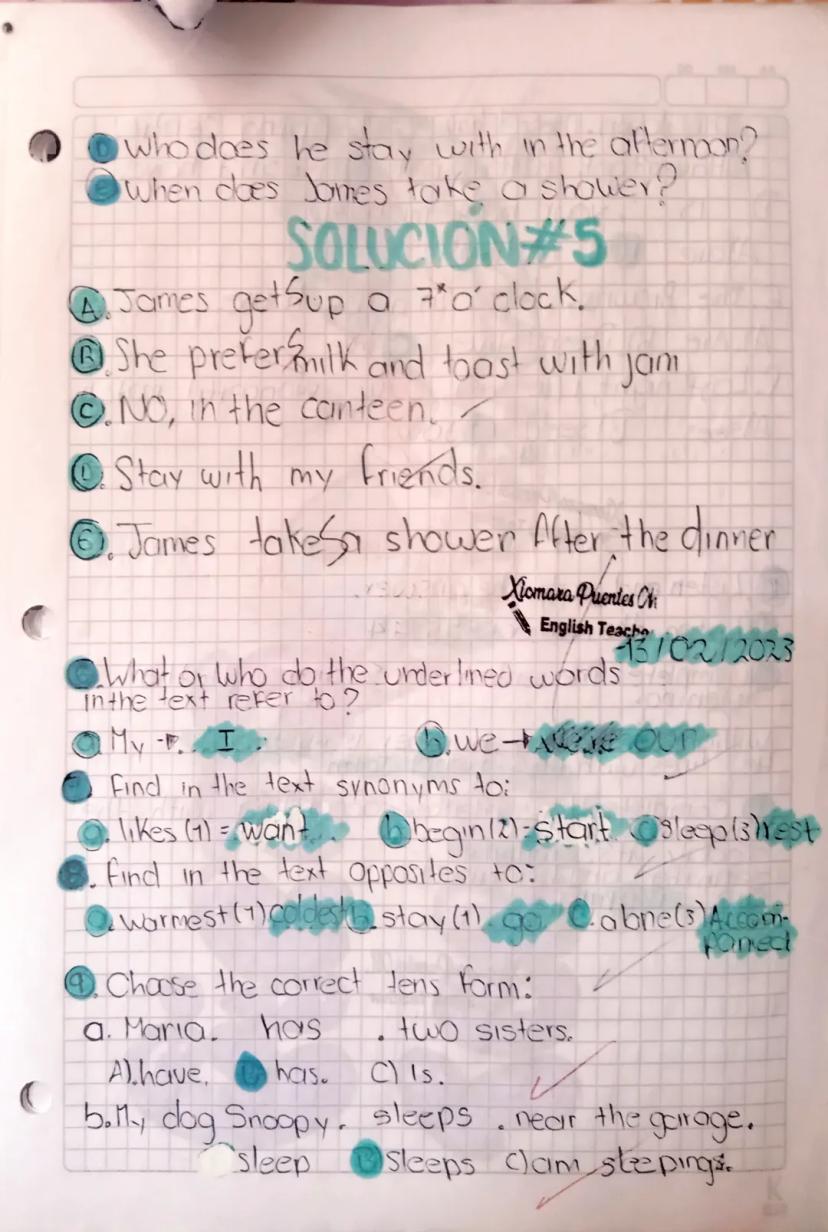 D Who does he stay with in the afternoon?
E When does James take a shower?
SOLUCIÓN #5
A. James getSup a 7* o' clock.
B. She preferS milk and toast with jam
C. NO, in the canteen.
D. Stay with my friends.
E. James takeS a shower After the dinner
Xiomara Puentes Ch
English Teache
13/02/2023
6. What or who do the underlined words
in the text refer to?
a My → I. b. we → our
7 Find in the text synonyms to:
a. likes (1) = want. b begin (2) = start. c sleep (3) rest
8. find in the text opposites to:
a. warmest (1) coldest b. stay (1). go C. alone (3) Accom-
panied
9. Choose the correct tens form:
a. Maria. has . two sisters.
A). have. B has. C) Is.
b. My dog Snoopy. sleeps . near the garage.
sleep B Sleeps C) am sleepings.